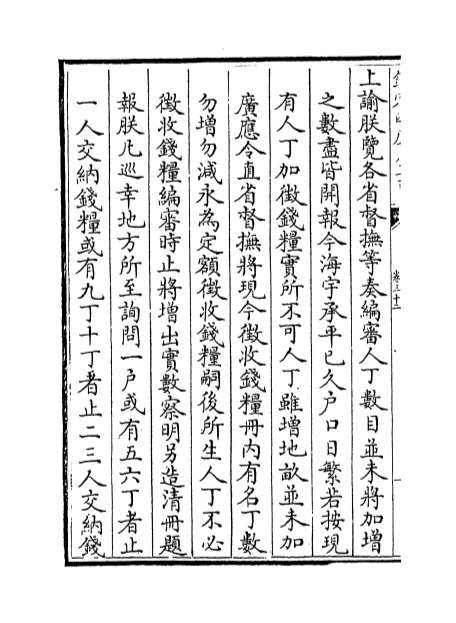 上諭朕覽各省督撫等奏編審人丁數目並未將加增
之數盡皆開報今海宇承平已久户口日繁若按現
有人丁加徴錢糧實所不可人丁雖增地畝並未加
廣應令直省督撫將現今徴收錢糧冊内有名丁數
勿增勿減永為定額徴收錢糧嗣後所生人丁不必
徴收錢糧編審時止將增出實數察明另造清冊題
報朕凡巡幸地方所至詢問一户或有五六丁者止
一人交納錢糧或有九丁十丁者止二三人交納錢